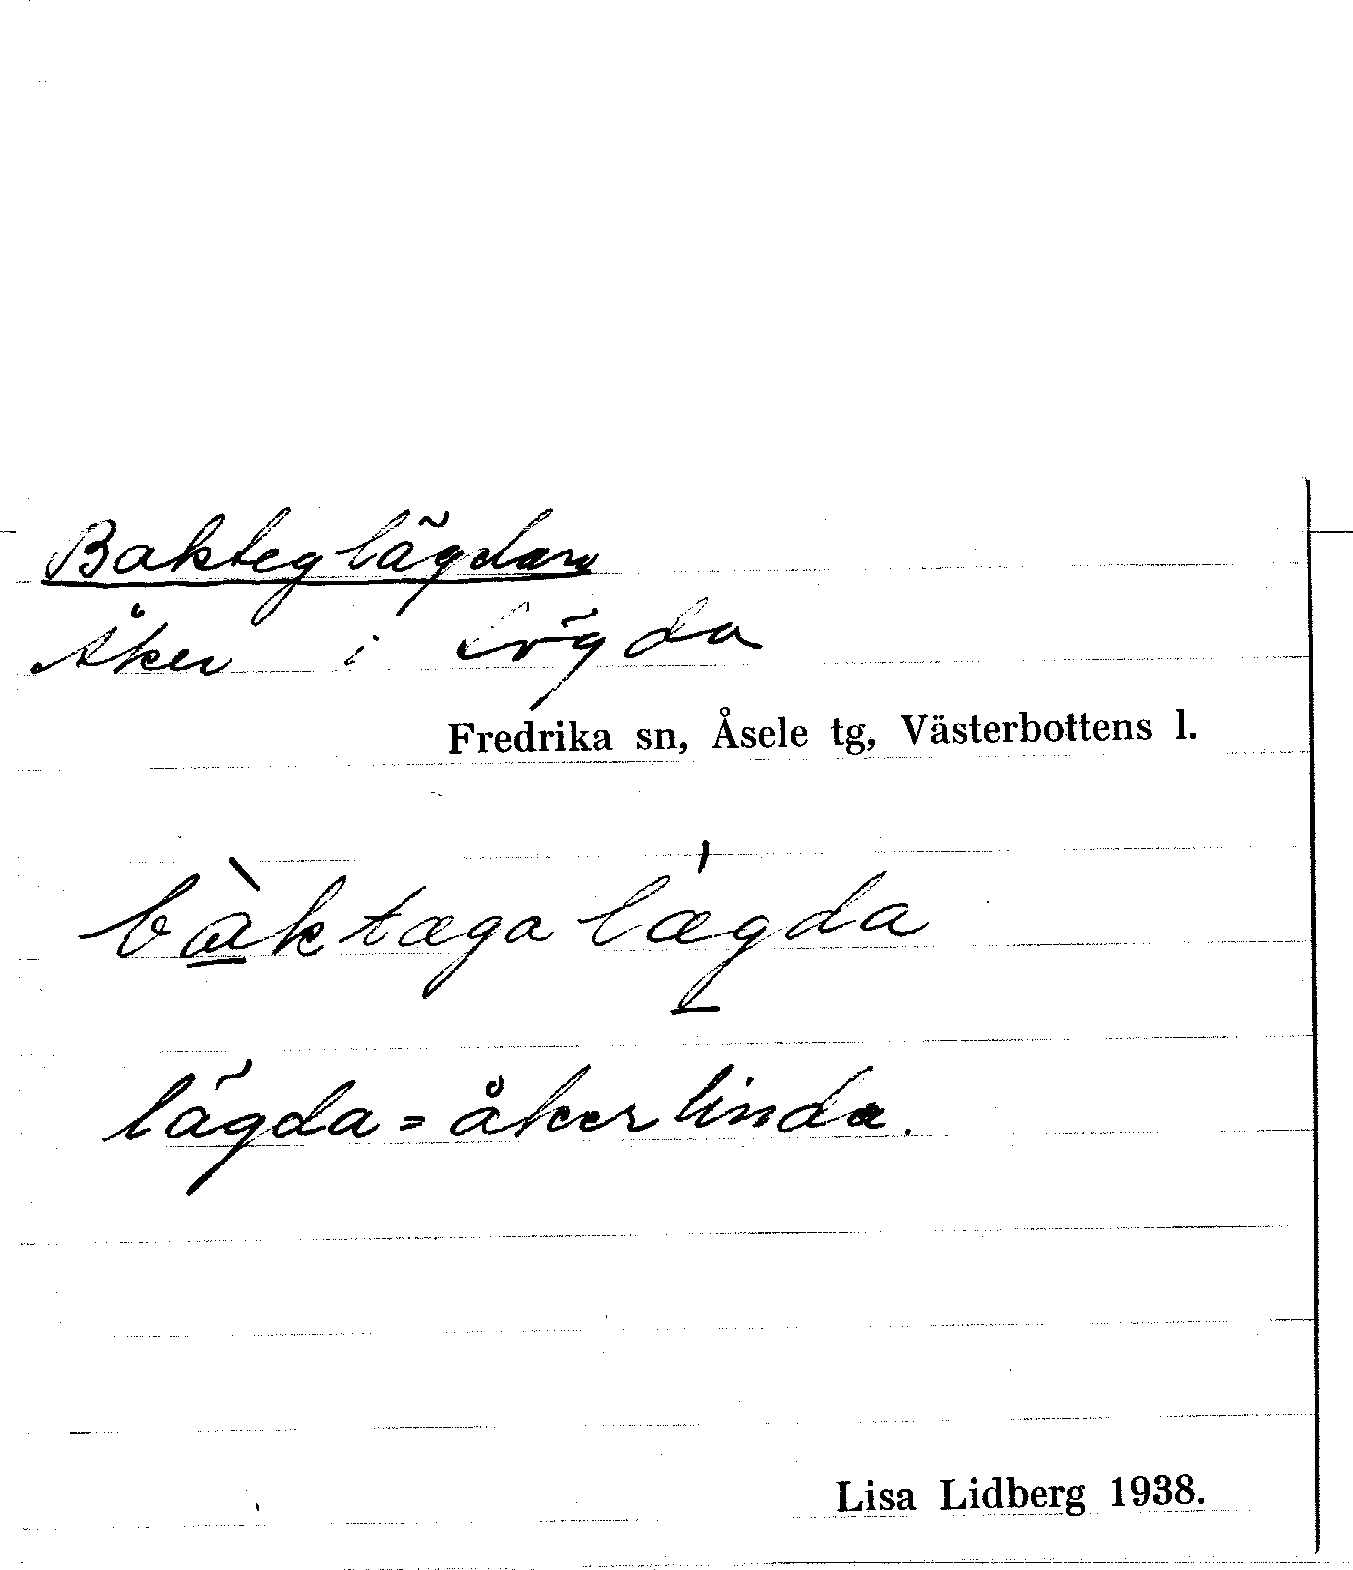 Bakteglägdan
Åker i Lögda
Fredrika sn, Åsele tg, Västerbottens l.
bàktægalægda
lägda = åkerlinda.
Lisa Lidberg 1938.